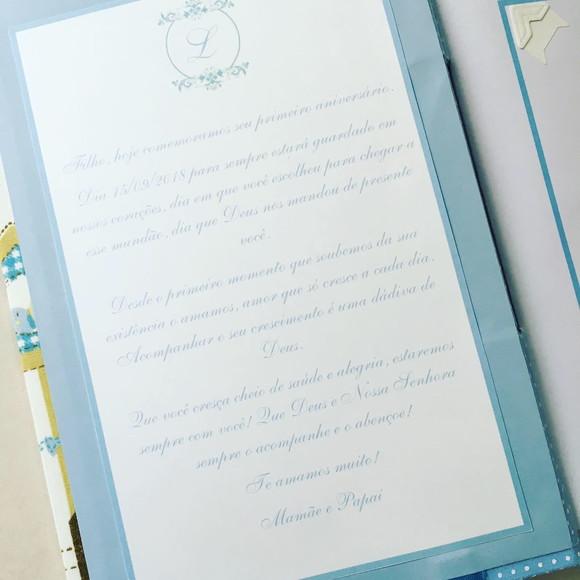 L
Filho, hoje comemoramos seu primeiro aniversário.
Dia 15/09/2018 para sempre estará guardado em
nossos corações, dia em que você escolheu para chegar a
esse mundão, dia que Deus nos mandou de presente
você.
Desde o primeiro momento que soubemos da sua
existência o amamos, amor que só cresce a cada dia.
Acompanhar o seu crescimento é uma dádiva de
Deus.
Que você cresça cheio de saúde e alegria, estaremos
sempre com você! Que Deus e Nossa Senhora
sempre o acompanhe e o abençoe!
Te amamos muito!
Mamãe e Papai